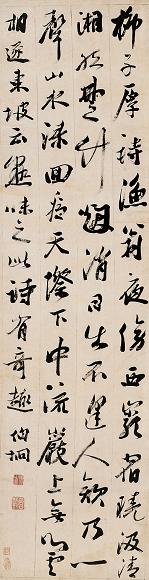 柳子厚詩漁翁夜傍西巖宿曉汲清
湘然楚竹煙消日出不逢人欸乃一
聲山水淥回看天際下中流巖上無心雲
相逐東坡云熟味之此詩有奇趣 伯坰